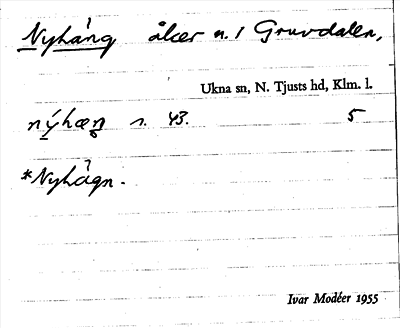 Nyhäng åker n. 1 Gruvdalen,
Ukna sn, N. Tjusts hd, Klm. l.
nýhæŋ s. 43. 5
*Nyhägn.
Ivar Modéer 1955